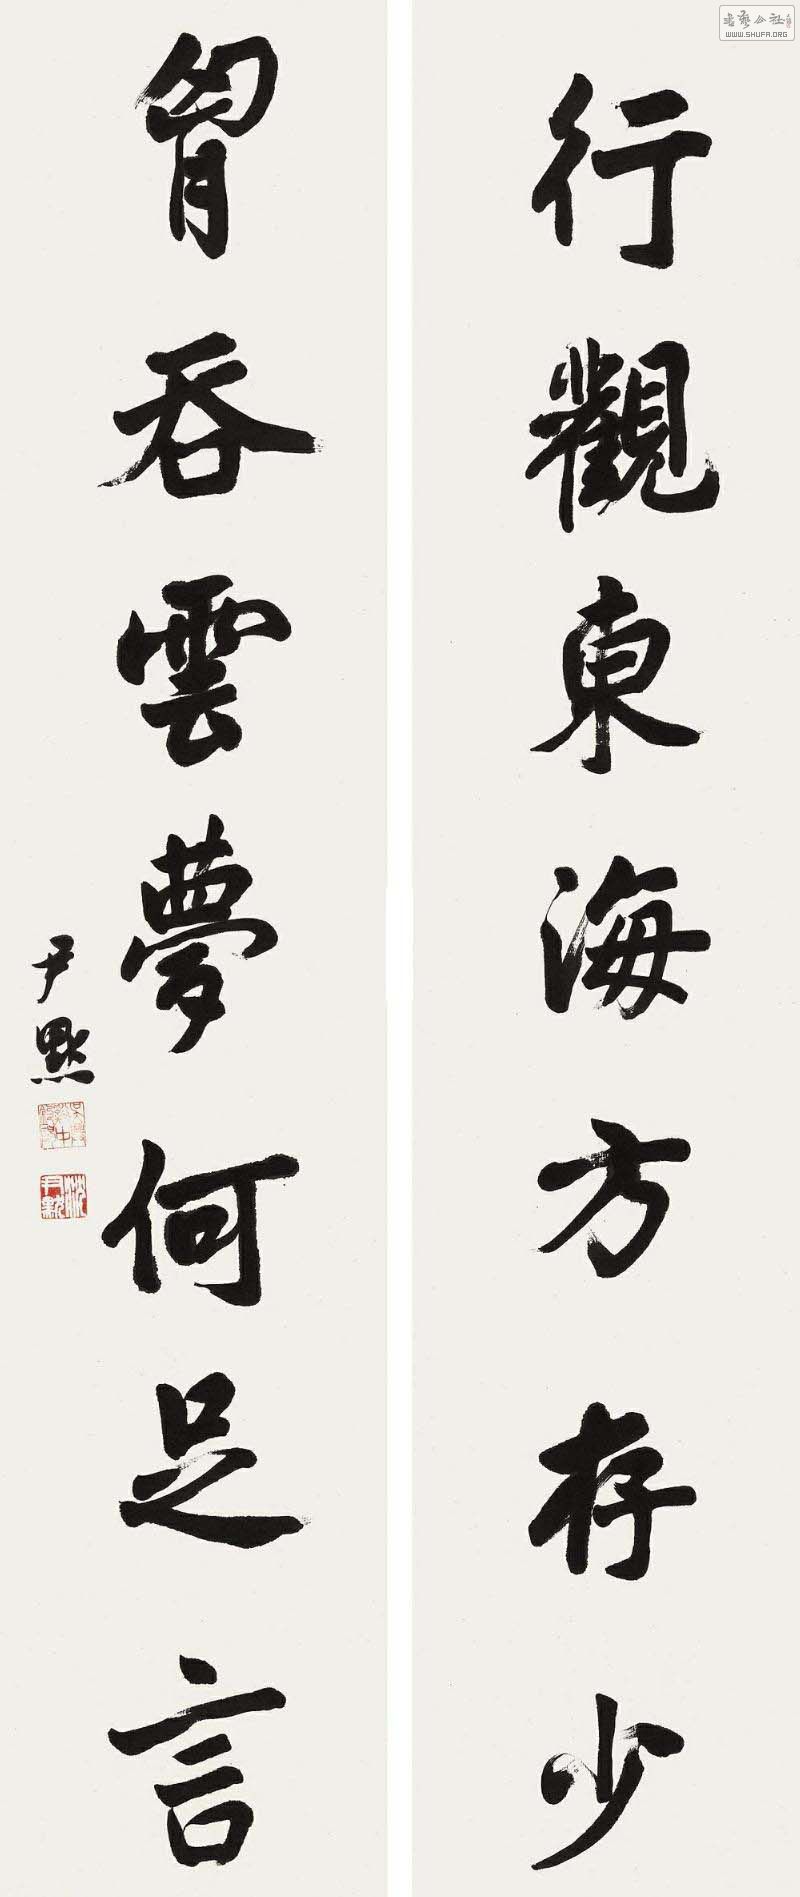 行觀東海方存少
胷吞雲夢何足言
尹默
沈尹默
書藝公社
WWW.SHUFA.ORG